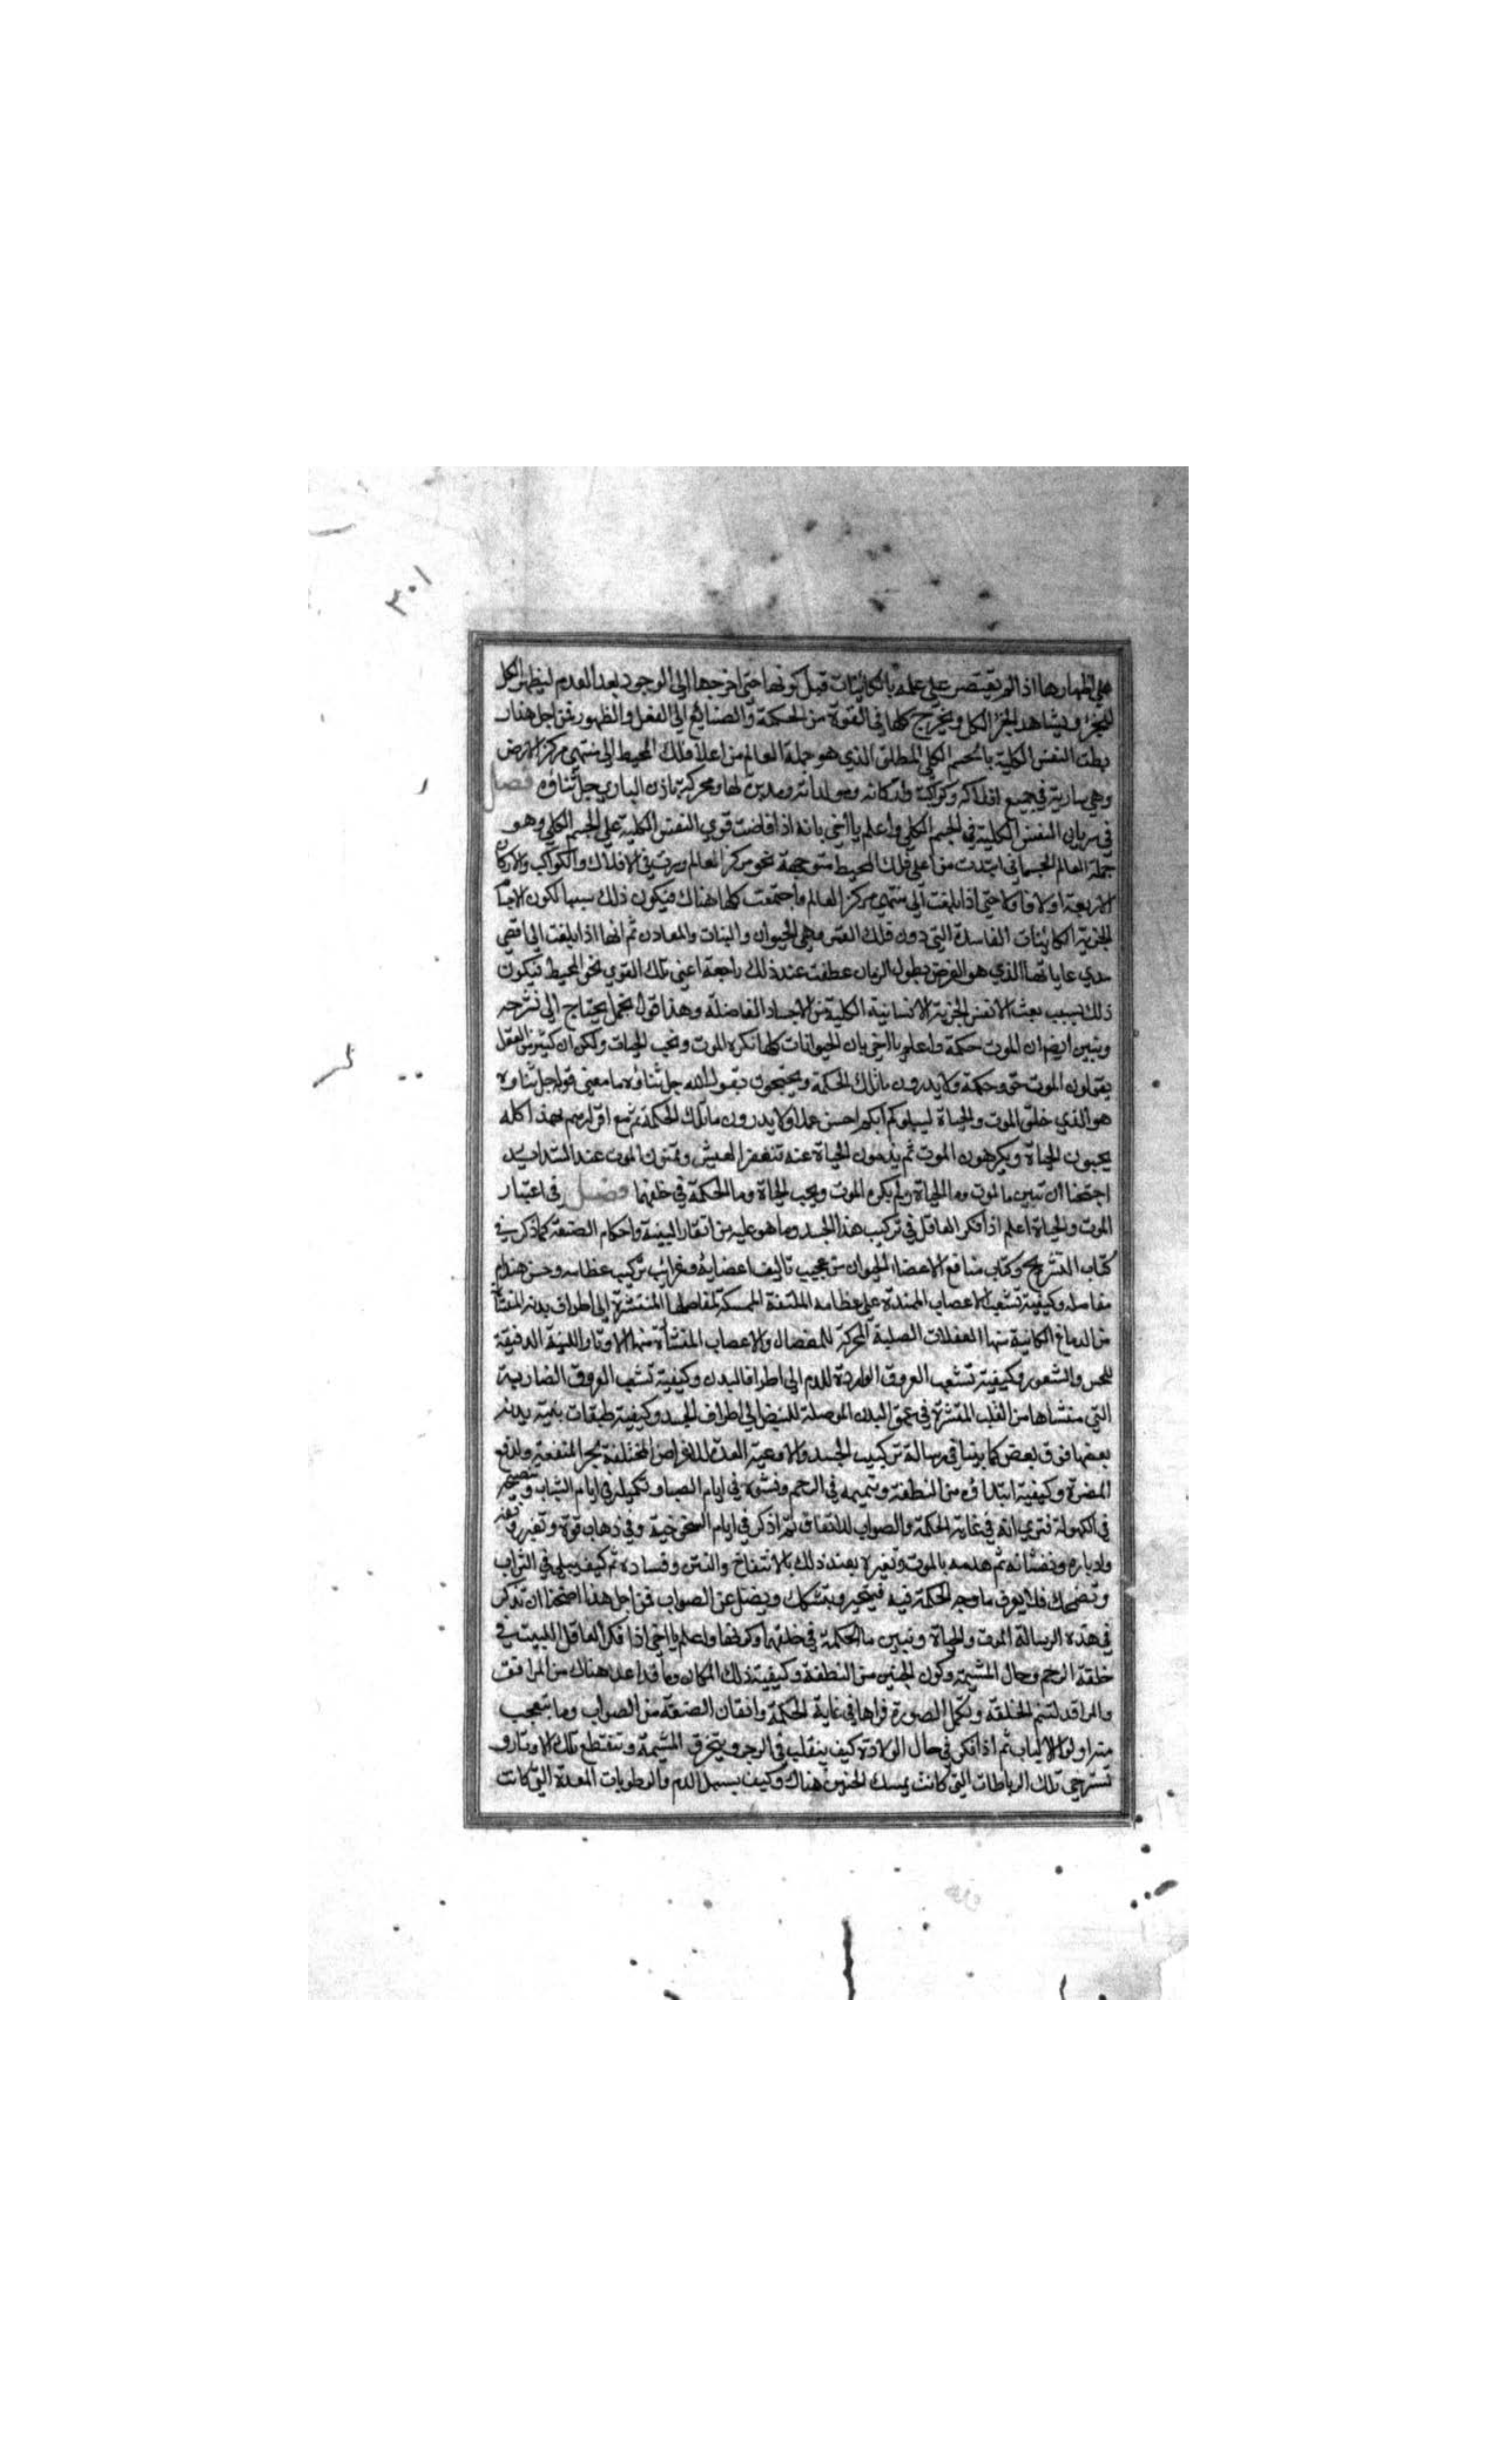 ٣٠١
علي اظهارها اذا لم يقتصر علي علمه بالكائنات قبل كونها حتي اخرجها الي الوجود بعد العدم ليظهر الكل
للجزؤ ويشاهد الجز الكل ويخرج كلها في القوة من الحكمة والصنائع الي الفعل والظهور فمن اجل هذا ر
بطت النفس الكلية بالجسم الكلي المطلق الذي هو جملة العالم من اعلا فلك المحيط الي منتهي مركز الارض
وهي سارية في جميع افلاكه وكواكبه واركانه ومولداته ومدبرة لها ومحركة باذن الباري جل ثناؤه فصل
في سريان النفس الكلية في الجسم الكلي واعلم يا اخي بانه اذا فاضت قوي النفس الكلية علي الجسم الكلي وهو
جملة العالم الجسماني ابتدت من اعلي فلك المحيط متوجهة نحو مركز العالم وسرت في الافلاك والكواكب والاركان
الاربعة اولا فاولا حتي اذا بلغت الي منتهي مركز العالم واجتمعت كلها هناك فيكون ذلك سببا لكون الاجسا
الجزية الكائنات الفاسدة التي دون فلك القمر وهي الحيوان والنبات والمعادن ثم انها اذا بلغت الي اقصي
مدي غاياتها الذي هو الغرض بطول الزمان عطفت عند ذلك راجعة اعني تلك القوي نحو المحيط فيكون
ذلك بسبب بعث الانفس الجزية الانسانية الكلية من الاجساد الفاضلة وهذا قول مجمل يحتاج الي نشرحه
ونبين ايضا ان الموت حكمة واعلم يا اخي بان الحيوانات كلها تكره الموت وتحب الحيات ولكن ان كثيرا من العقل
يقولون الموت حق وحكمة ولا يدرون ما تلك الحكمة ويحتجون بقول الله جل ثناؤه ما معني قوله جل ثناوه
هو الذي خلق الموت والحياة ليبلوكم ايكم احسن عملا ولا يدرون ما تلك الحكمة ثم مع اقرارهم بهذا كله
يحبون الحياة ويكرهون الموت ثم يذمون الحياة عند تنغص العيش ويتمنون الموت عند الشدايد
احتجنا ان نبين ما الموت وما الحياة ولم يكره الموت ويحب الحياة وما الحكمة في خلقهما فصل في اعتبار
الموت والحياة اعلم اذا فكر العاقل في تركيب هذا الجسد وما هو عليه من اتقان البنية واحكام الصنعة كما ذكر في
كتاب التشريح وكتاب منافع الاعضا الحيوان من عجيب تاليف اعضايه وغرائب تركيب عظامه وحسن هندام
مفاصله وكيفية تشعب الاعصاب الممتدة علي عظامه الملتفة الممسكة لمفاصلها المنتشرة الي اطراف بدنه المنشأة
من الدماغ الكائنة منها العضلات الصلبة المحركة للمفصال والاعصاب المنشأة منها الاوتار واللينة الدقيقة
للحس والشعور وكيفية تشعب العروق الواردة للدم الي اطراف البدن وكيفية تشعب العروق الضاربة
التي منشاها من القلب المنتشرة في عمق البدن الموصلة للنبض الي اطراف الجسد وكيفية طبقات بنية بدنه
بعضها فوق بعض كما بينا في رسالة تركيب الجسد والاوعية المعدة للاغراض المختلفة بجر المنفعة ولدفع
المضرة وكيفية ابتداؤه من النطفة وتتميمه في الرحم ونشوه في ايام الصبا وتكميله في ايام الشباب
في الكهولة فتري بانه في غاية الحكمة والصواب للاتفاق ثم اذ كر في ايام الشيخوخية وفي ذهاب قوة وتغير
وادباره ونقصانه ثم هدمه بالموت وتغيره بعند ذلك بالانتفاخ والنتن وفساده ثم كيف يبلي في التراب
وتضمحل فلا يعرف ما وجه الحكمة فيه فيتحير ويتشكك ويضل عن الصواب فمن اجل هذا احتجنا ان نذكر
في هذه الرسالة الموت والحياة ونبين ما الحكمة في خلقهما وكونهما واعلم يا اخي اذا فكر العاقل اللبيب في
خلقة الرحم وحال المشيمة وكون الجنين من النطفة وكيفية ذلك المكان وما قد اعد هناك من المرافق
والمراقد لتتم الخلقة وتكمل الصورة فراها في غاية الحكمة واتقان الصنعة من الصواب وما يتعجب
منه اولو الالباب ثم اذا فكر في حال الولادة كيف ينقلب في الرحم ويتخرق المشيمة وتنقطع تلك الاوتار و
تسترخي تلك الرباطات التي كانت يمسك الجنين هناك وكيف يسيل الدم والرطوبات المعدة التي كانت